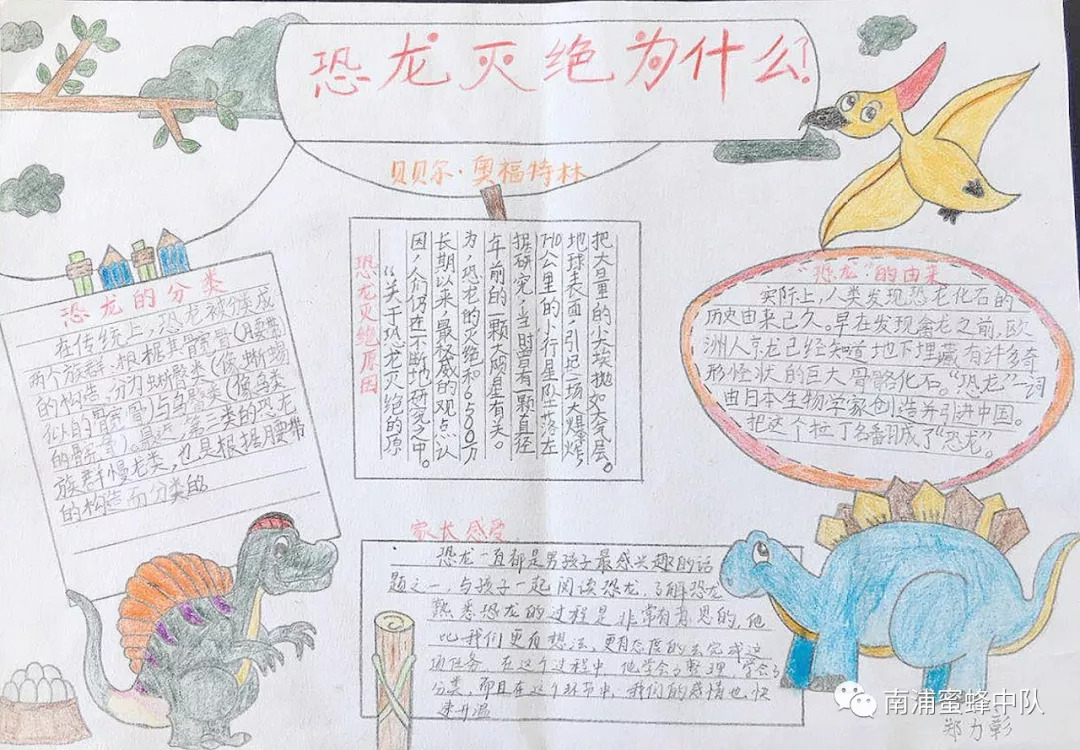 恐龙灭绝为什么?!
贝贝尔·奥福特林
恐龙的分类
在传统上,恐龙被分类成
两个族群,根据其髋骨(腰带)
的构造,分为蜥臀类(像蜥蜴
似的骨宽骨)与鸟臀类(像鸟类
的骨宽骨)。最近,第三类的恐龙
族群慢龙类,也是根据腰带
的构造而分类的
恐龙灭绝原因
“关于恐龙灭绝的原
因,人们仍在不断地研究之中。
长期以来,最权威的观点认
为,恐龙的灭绝和6500万
年前的一颗小行星有关。
据研究,当时曾有一颗直径
7-10公里的小行星坠落在
地球表面,引起一场大爆炸,
把大量的尘埃抛如大气层。
“恐龙”的由来
实际上,人类发现恐龙化石的
历史由来已久。早在发现禽龙之前,欧
洲人就已经知道地下埋藏有许多奇
形怪状的巨大骨骼化石。“恐龙”一词
由日本生物学家创造并引进中国。
把这个拉丁名翻成了“恐龙”。
家长感受
恐龙一直都是男孩子最感兴趣的话
题之一,与孩子一起阅读恐龙,了解恐龙
熟悉恐龙的过程是非常有意思的,他
比我们更有想法,更有态度的去完成这
项任务。在这个过程中,他学会了整理,学会了
分类,而且在这个环节中,我们的感情也快
速升温
郑力彰
南浦蜜蜂中队